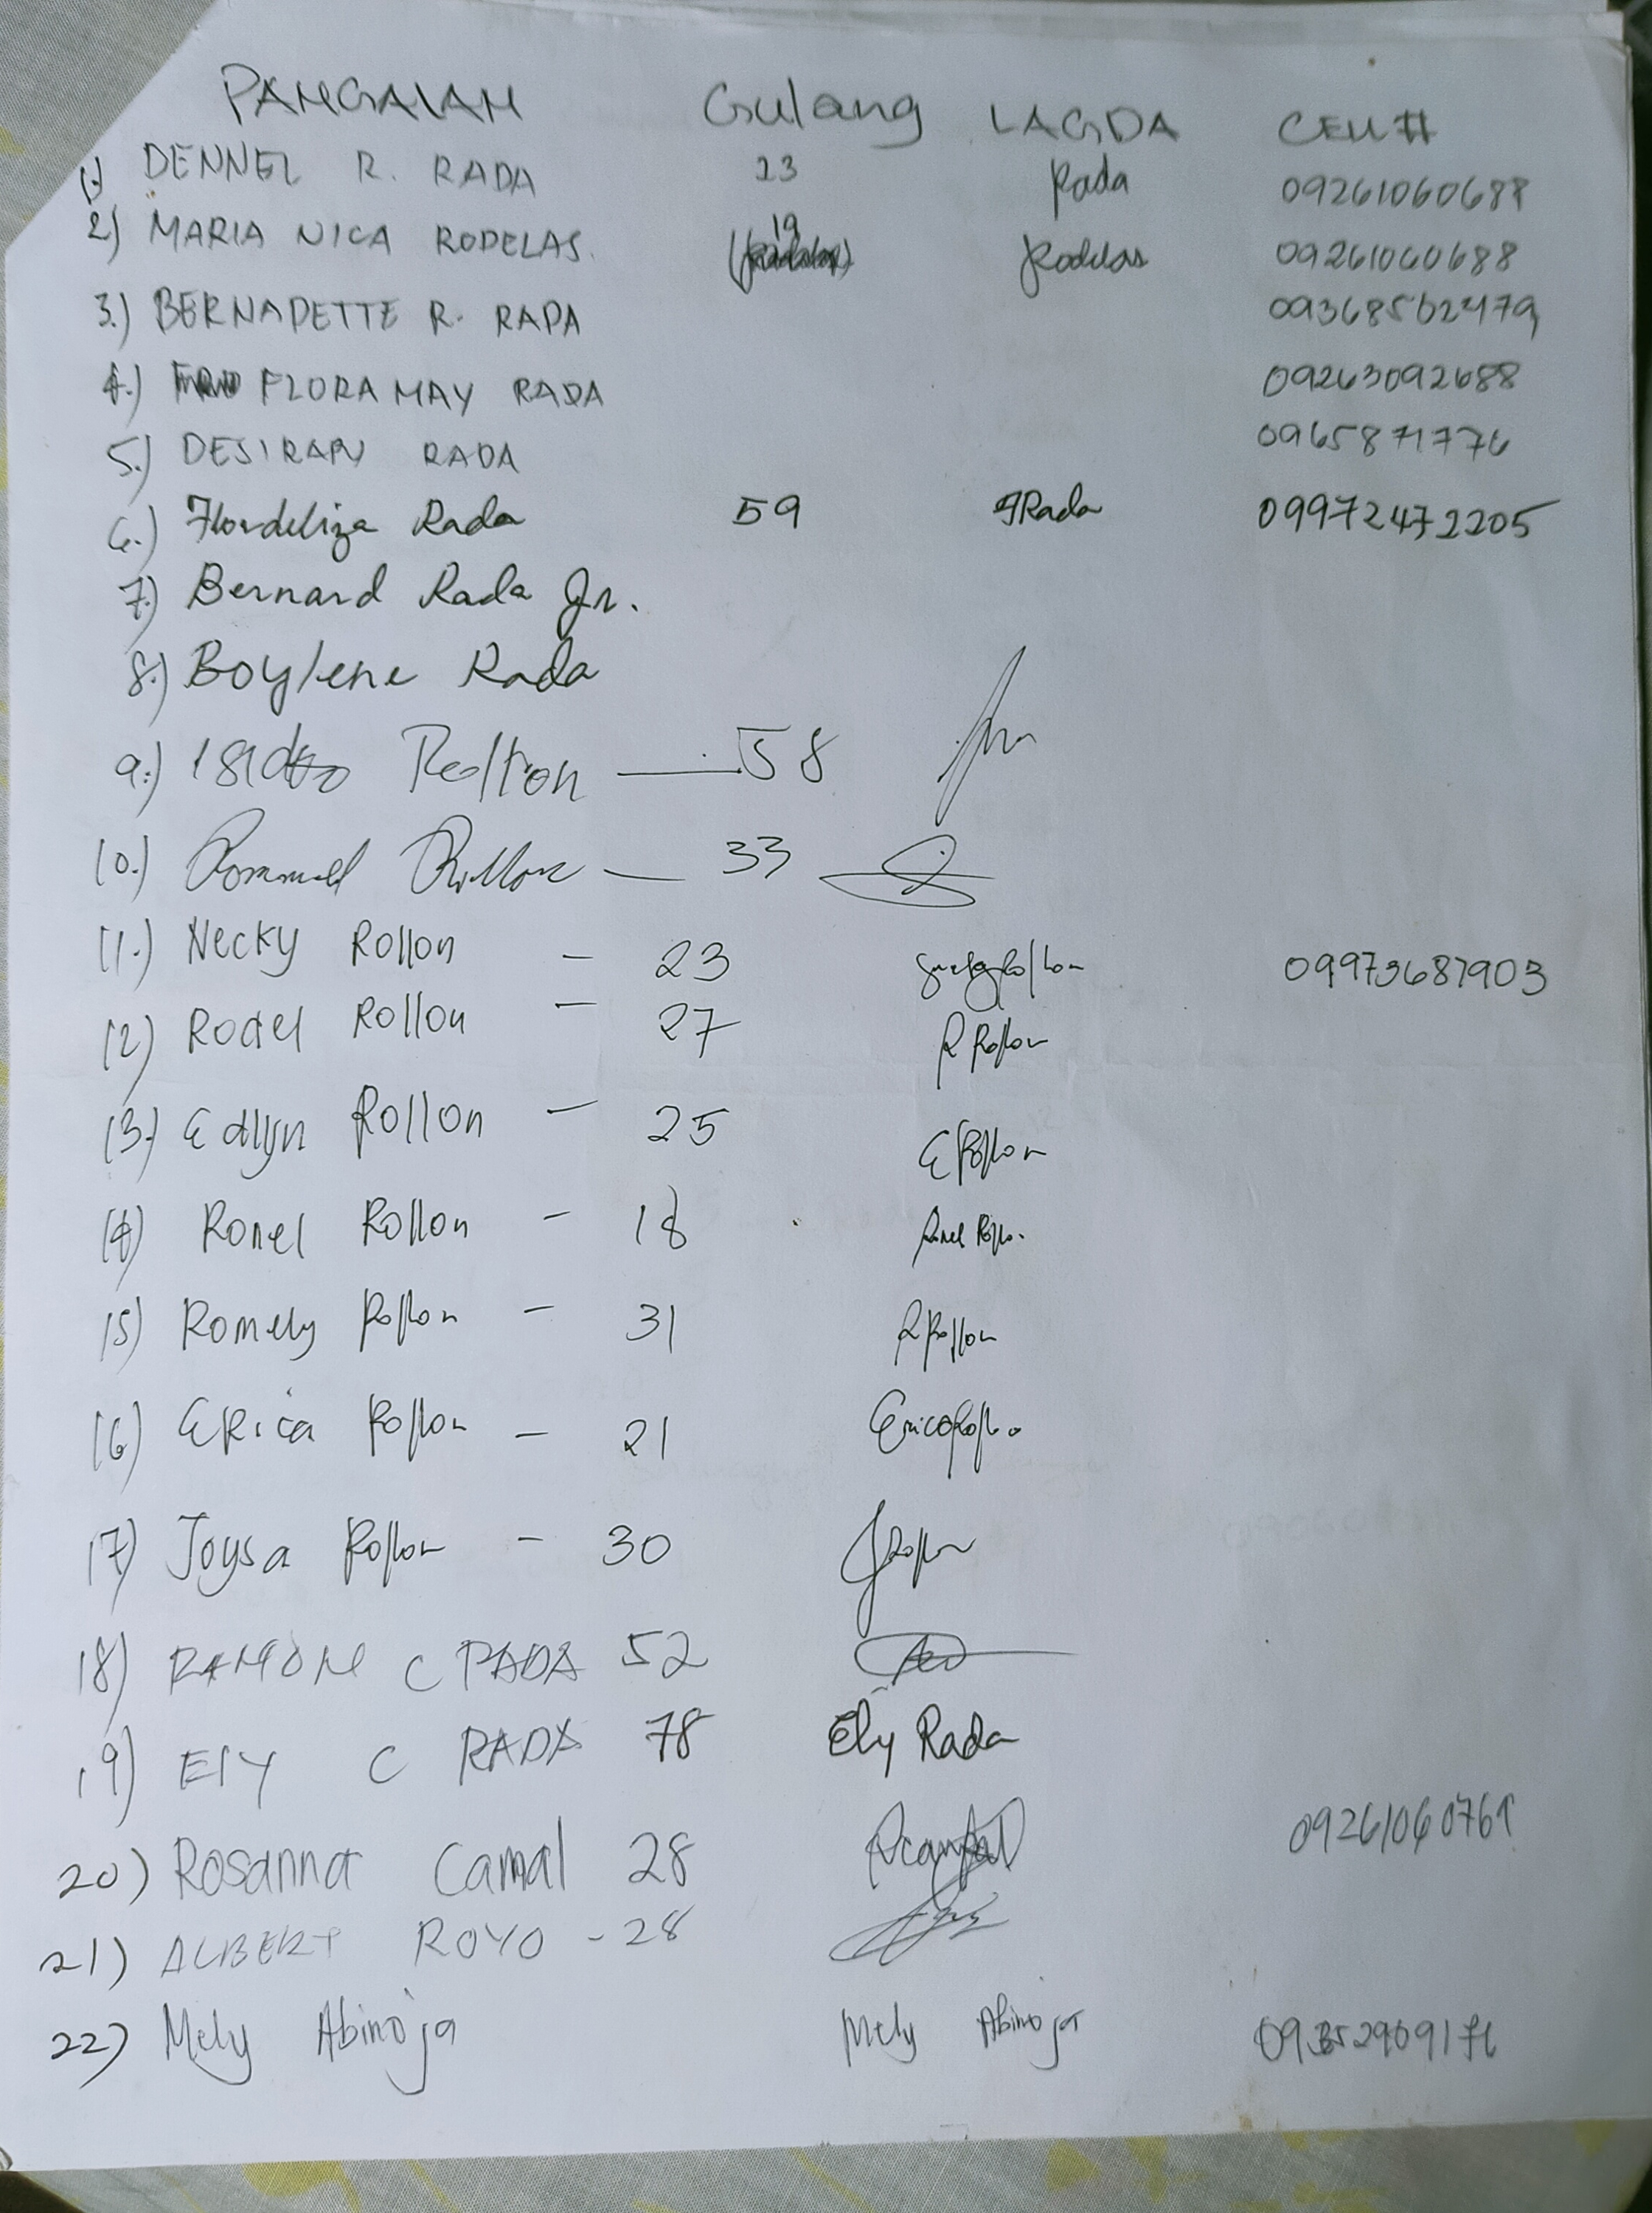 PANGALAN Gulang LAGDA CELL#
1.) DENNEL R. RADA 23 Rada 09261060688
2.) MARIA NICA RODELAS. 19 Rodelas 09261060688
3.) BERNADETTE R. RADA 09368562479
4.) FLORA MAY RADA 09263092688
5.) DESIRAY RADA 0965871776
6.) Flordeliza Rada 59 FRada 09972472205
7.) Bernard Rada Jr.
8.) Boylene Rada
9.) Rollon — 58
10.) Rommel Rollon — 33
11.) Necky Rollon - 23 09973687903
12) Rodel Rollon - 27 R Rollon
13.) Edlyn Rollon - 25 E Rollon
14) Ronel Rollon - 18 Ronel Rollon
15) Romely Rollon - 31 R Rollon
16) ERica Rollon - 21 Erica Rollon
17) Joysa Rollon - 30 JRollon
18) RAMON C RADA 52
19) Ely C RADA 78 Ely Rada
20) Rosanna Camal 28 09261060761
21) ALBERT ROYO - 28
22) Mely Abinoja Mely Abinoja